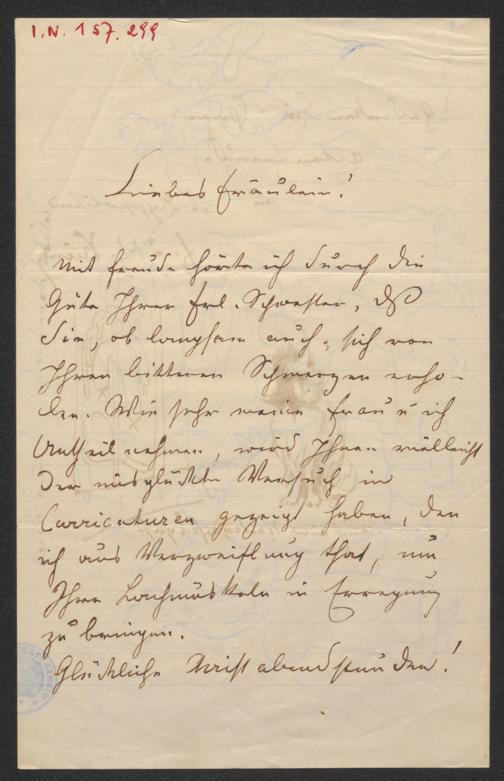 I.N. 157.299
Liebes Fräulein!
Mit Freude hörte ich durch die
Güte Ihrer Frl. Schwester, dß
Sie, ob langsam auch, sich von
Ihren bitteren Schmerzen erho-
len. Wie sehr meine Frau u ich
Antheil nehmen, wird Ihnen vielleicht
der misglückte Versuch in
Carricaturen gezeigt haben, den
ich aus Verzweiflung that, um
Ihre Lachmuskeln in Erregung
zu bringen.
Glückliche Christabendstunden!